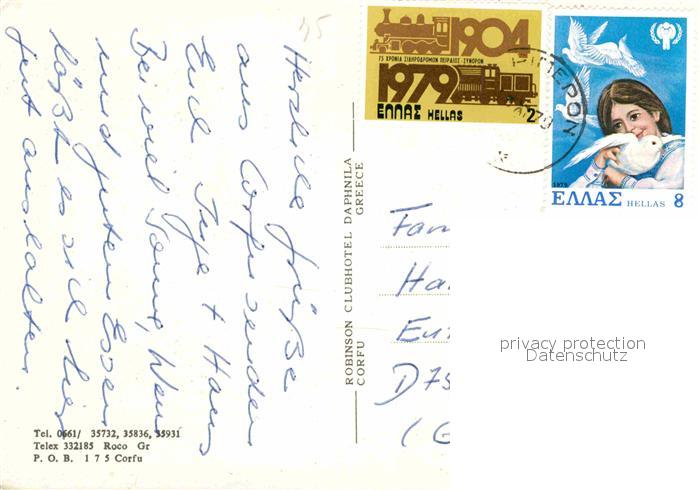 Herzliche Grüße
aus Corfu senden
Euch Inge + Hans
Bei viel Sonne, Wein
und gutem Essen
läßt es sich hier
gut aushalten.
Tel. 0661/ 35732, 35836, 35931
Telex 332185 Roco Gr
P. O. B. 1 7 5 Corfu
ROBINSON CLUBHOTEL DAPHNILA
CORFU GREECE
1904
75 ΧΡΟΝΙΑ ΣΙΔΗΡΟΔΡΟΜΩΝ ΠΕΙΡΑΙΩΣ-ΣΥΝΟΡΩΝ
1979
ΕΛΛΑΣ HELLAS 2
1979
ΕΛΛΑΣ HELLAS 8
Fam
Ha
Eu
D 75
(G
privacy protection
Datenschutz